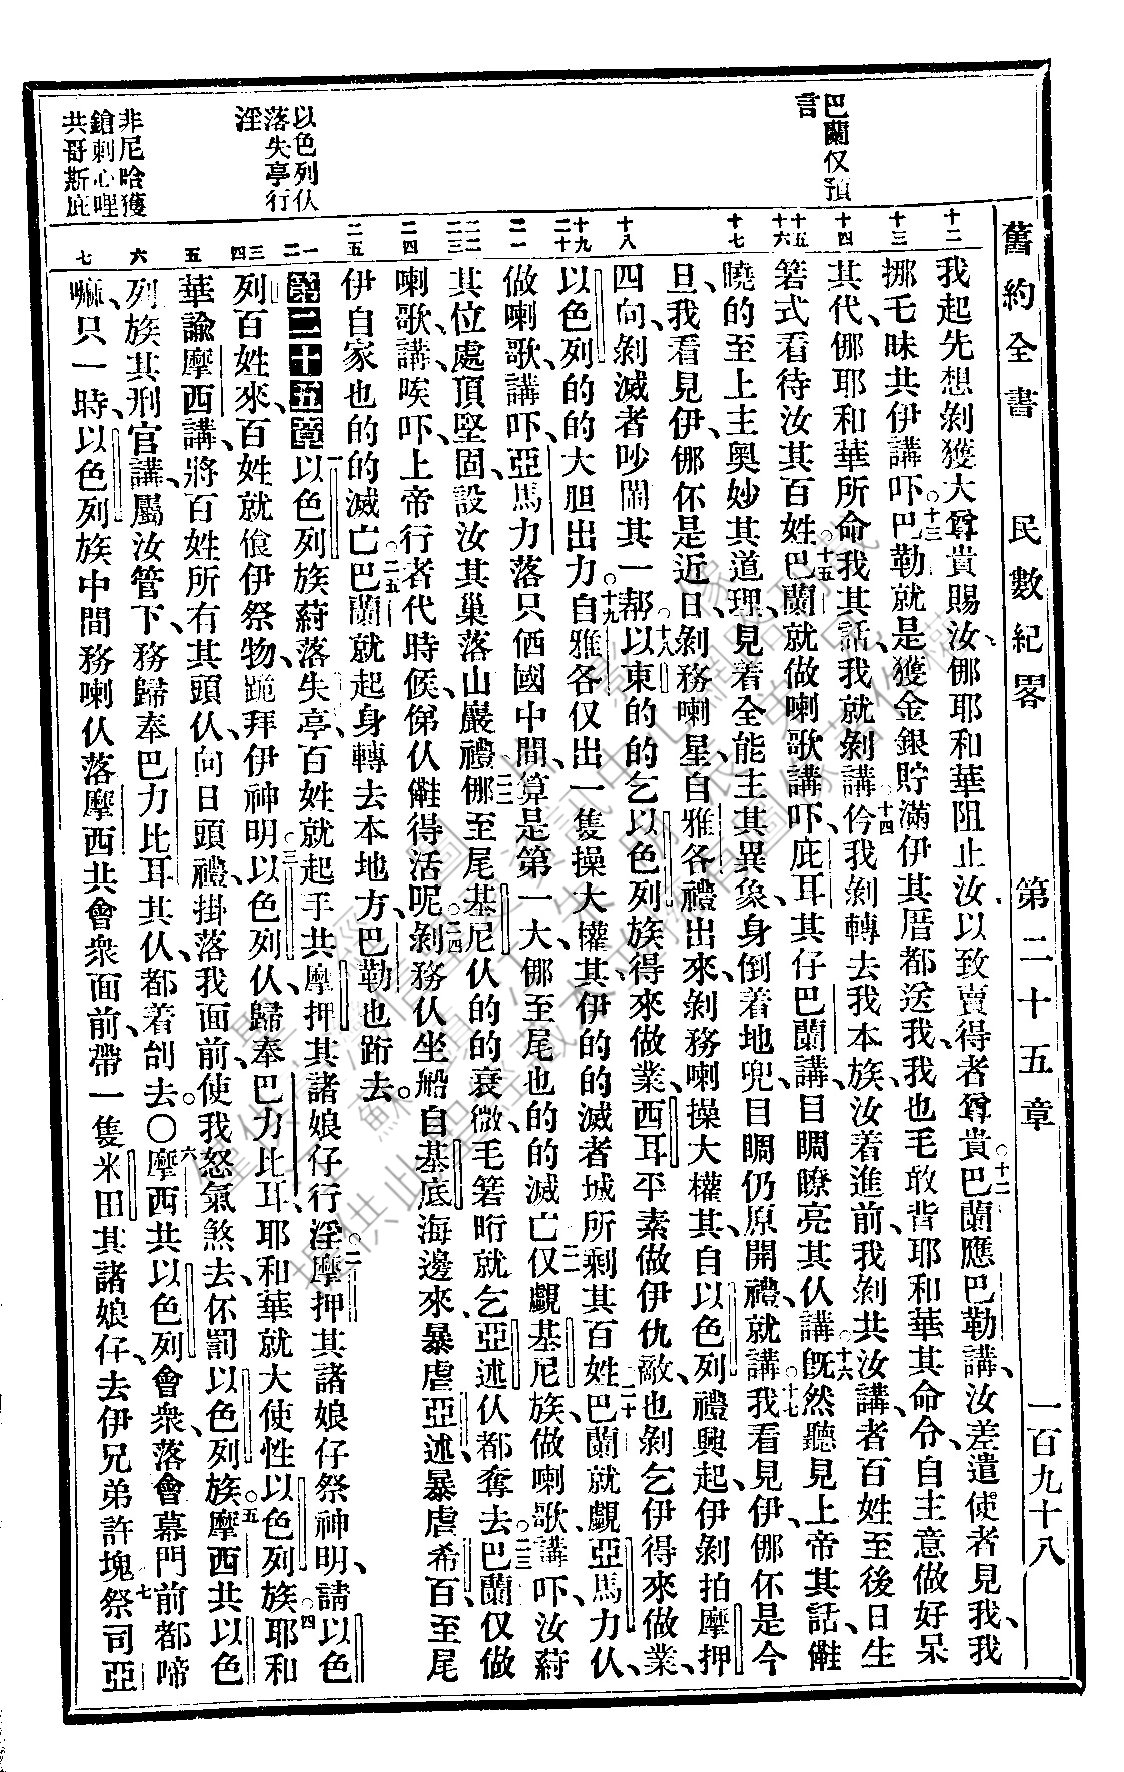 舊約全書 民數紀畧 第二十五章 一百九十八
巴蘭仅預
言
以色列仈
落失亭行
淫
非尼哈獲
鎗刺心哩
共哥斯庇
十二
十三
十四
十五
十六
十七
十八
十九
二十
二一
二二
二三
二四
二五
一
二
三
四
五
六
七
我起先想剝獲大尊貴賜汝、𪜶耶和華阻止汝以致賣得者尊貴。十二巴蘭應巴勒講、汝差遣使者見我、我
挪毛昧共伊講吓。十三巴勒就是獲金銀貯滿伊其厝都送我、我也毛敢背耶和華其命令、自主意做好呆
其代、𪜶耶和華所命我其話、我就剝講。十四伶我剝轉去我本族、汝着進前、我剝共汝講、者百姓至後日生
箬式看待汝其百姓。十五巴蘭就做喇歌講吓、庇耳其仔巴蘭講、目睭瞭亮其仈講。十六既然聽見上帝其話、
曉的至上主奧妙其道理、見着全能主其異象、身倒着地兜、目睭仍原開禮、就講。十七我看見伊、𪜶伓是今
旦、我看見伊、𪜶伓是近日、剝務喇星自雅各禮出來、剝務喇操大權其自以色列禮興起、伊剝拍摩押
四向、剝滅者吵鬧其一幫。十八以東的的乞以色列族得來做業、西耳平素做伊仇敵、也剝乞伊得來做業、
以色列的的大胆出力。十九自雅各仅出一隻操大權其、伊的的滅者城所剩其百姓。二十巴蘭就觑亞馬力仈、
做喇歌、講吓、亞馬力落只個國中間、算是第一大、𪜶至尾也的的滅亡。二一仅觑基尼族、做喇歌、講吓、汝蒔
其位處頂堅固、設汝其巢落山巖禮。二二𪜶至尾基尼仈的的衰微、毛箬𣍐就乞亞述仈都奪去。二三巴蘭仅做
喇歌、講唉吓、上帝行者代時候、俤仈𣍐得活呢。二四剝務仈坐船自基底海邊來、暴虐亞述暴虐希百、至尾
伊自家也的的滅亡。二五巴蘭就起身轉去本地方、巴勒也跔去。
第二十五章 一以色列族蒔落失亭、百姓就起手共摩押其諸娘仔行淫。二摩押其諸娘仔祭神明、請以色
列百姓來、百姓就飡伊祭物、跪拜伊神明。三以色列仈歸奉巴力比耳、耶和華就大使性以色列族。四耶和
華諭摩西講、將百姓所有其頭仈、向日頭禮、掛落我面前、使我怒氣煞去、伓罰以色列族。五摩西共以色
列族其刑官講、屬汝管下、務歸奉巴力比耳其仈、都着刣去。〇六摩西共以色列會衆、落會幕門前都啼
嘛、只一時、以色列族中間務喇仈、落摩西共會衆面前、帶一隻米田其諸娘仔、去伊兄弟許塊。七祭司亞